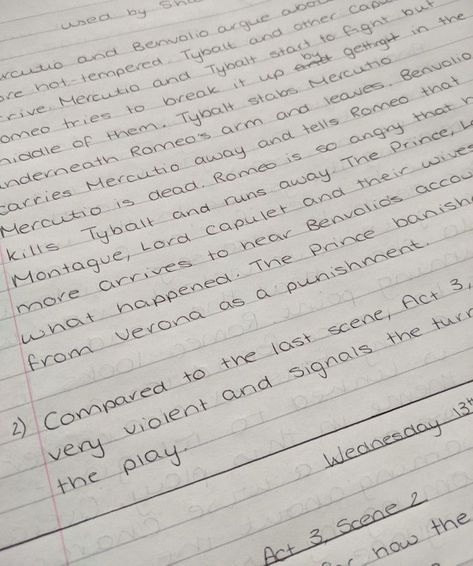 used by
and Benvolio argue
hot-tempered. Tybalt and other
Mercutio and Tybalt start to fight but
tries to break it up by getting in the
middle of them. Tybalt stabs Mercutio
underneath Romeo's arm and leaves. Benvolio
carries Mercutio away and tells Romeo that
Mercutio is dead. Romeo is so angry that
kills Tybalt and runs away. The Prince,
Montague, Lord Capulet and their wives
more arrives to hear Benvolio's
what happened. The Prince
from Verona as a punishment.
2) Compared to the last scene, Act 3,
very violent and signals the
the play.
Wednesday 13th
Act 3, Scene 2
how the